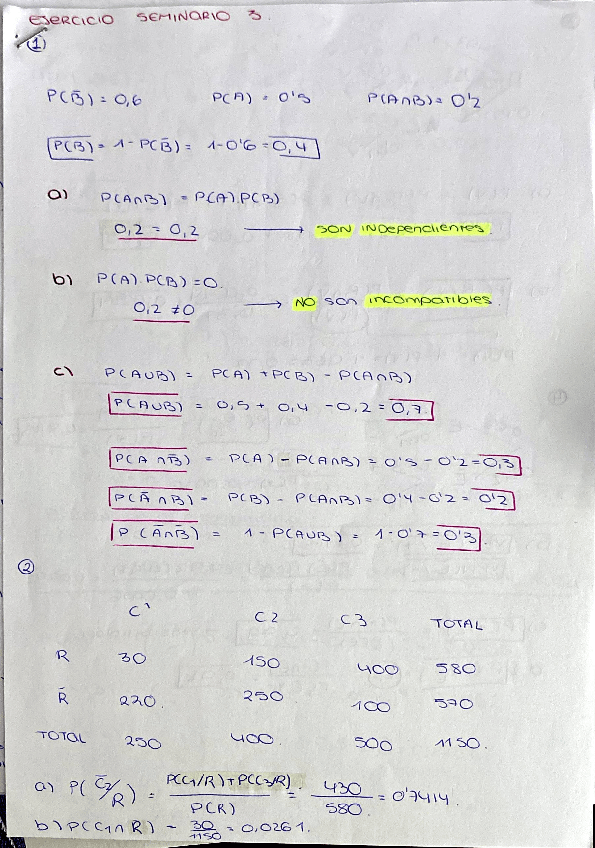 EJERCICIO SEMINARIO 3.
①
P(B̄) = 0,6 P(A) = 0'5 P(A∩B) = 0'2
P(B) = 1 - P(B̄) = 1 - 0'6 = 0,4
a) P(A∩B) = P(A).P(B)
0,2 = 0,2 → SON INDEPENDIENTES.
b) P(A).P(B) = 0.
0,2 ≠ 0 → NO son incompatibles.
c) P(A∪B) = P(A) + P(B) - P(A∩B)
P(A∪B) = 0,5 + 0,4 - 0,2 = 0,7
P(A ∩ B̄) = P(A) - P(A∩B) = 0'5 - 0'2 = 0,3
P(Ā ∩ B) = P(B) - P(A∩B) = 0'4 - 0'2 = 0'2
P(Ā∩B̄) = 1 - P(A∪B) = 1 - 0'7 = 0'3.
②
C1 C2 C3 TOTAL
R 30 150 400 580
R̄ 220. 250 100 570
TOTAL 250 400. 500 1150.
a) P(C̄2/R) = P(C1/R)+P(C3/R) / P(R) = 430/580 = 0'7414.
b) P(C1∩R) = 30/1150 = 0,0261.